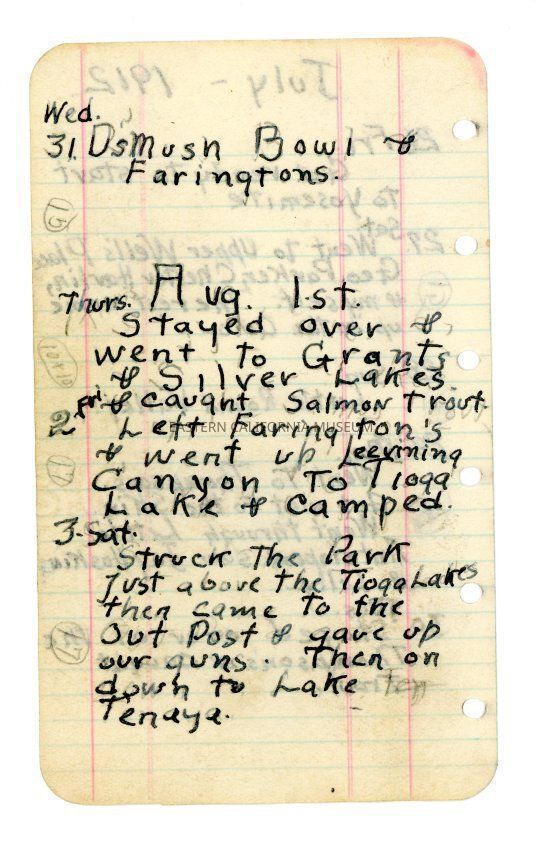 Wed.
31. D'sMush Bowl &
Faringtons.
Thurs. Aug. 1st.
Stayed over &
went to Grants
& Silver Lakes.
& caught Salmon Trout.
2 Fri. Left Farington's
EASTERN CALIFORNIA MUSEUM
& went up Leevining
Canyon To Tioga
Lake & camped.
3-Sat.
Struck The Park
Just above the Tioga Lakes
then came To the
Out Post & gave up
our guns. Then on
down to Lake
Tenaya.